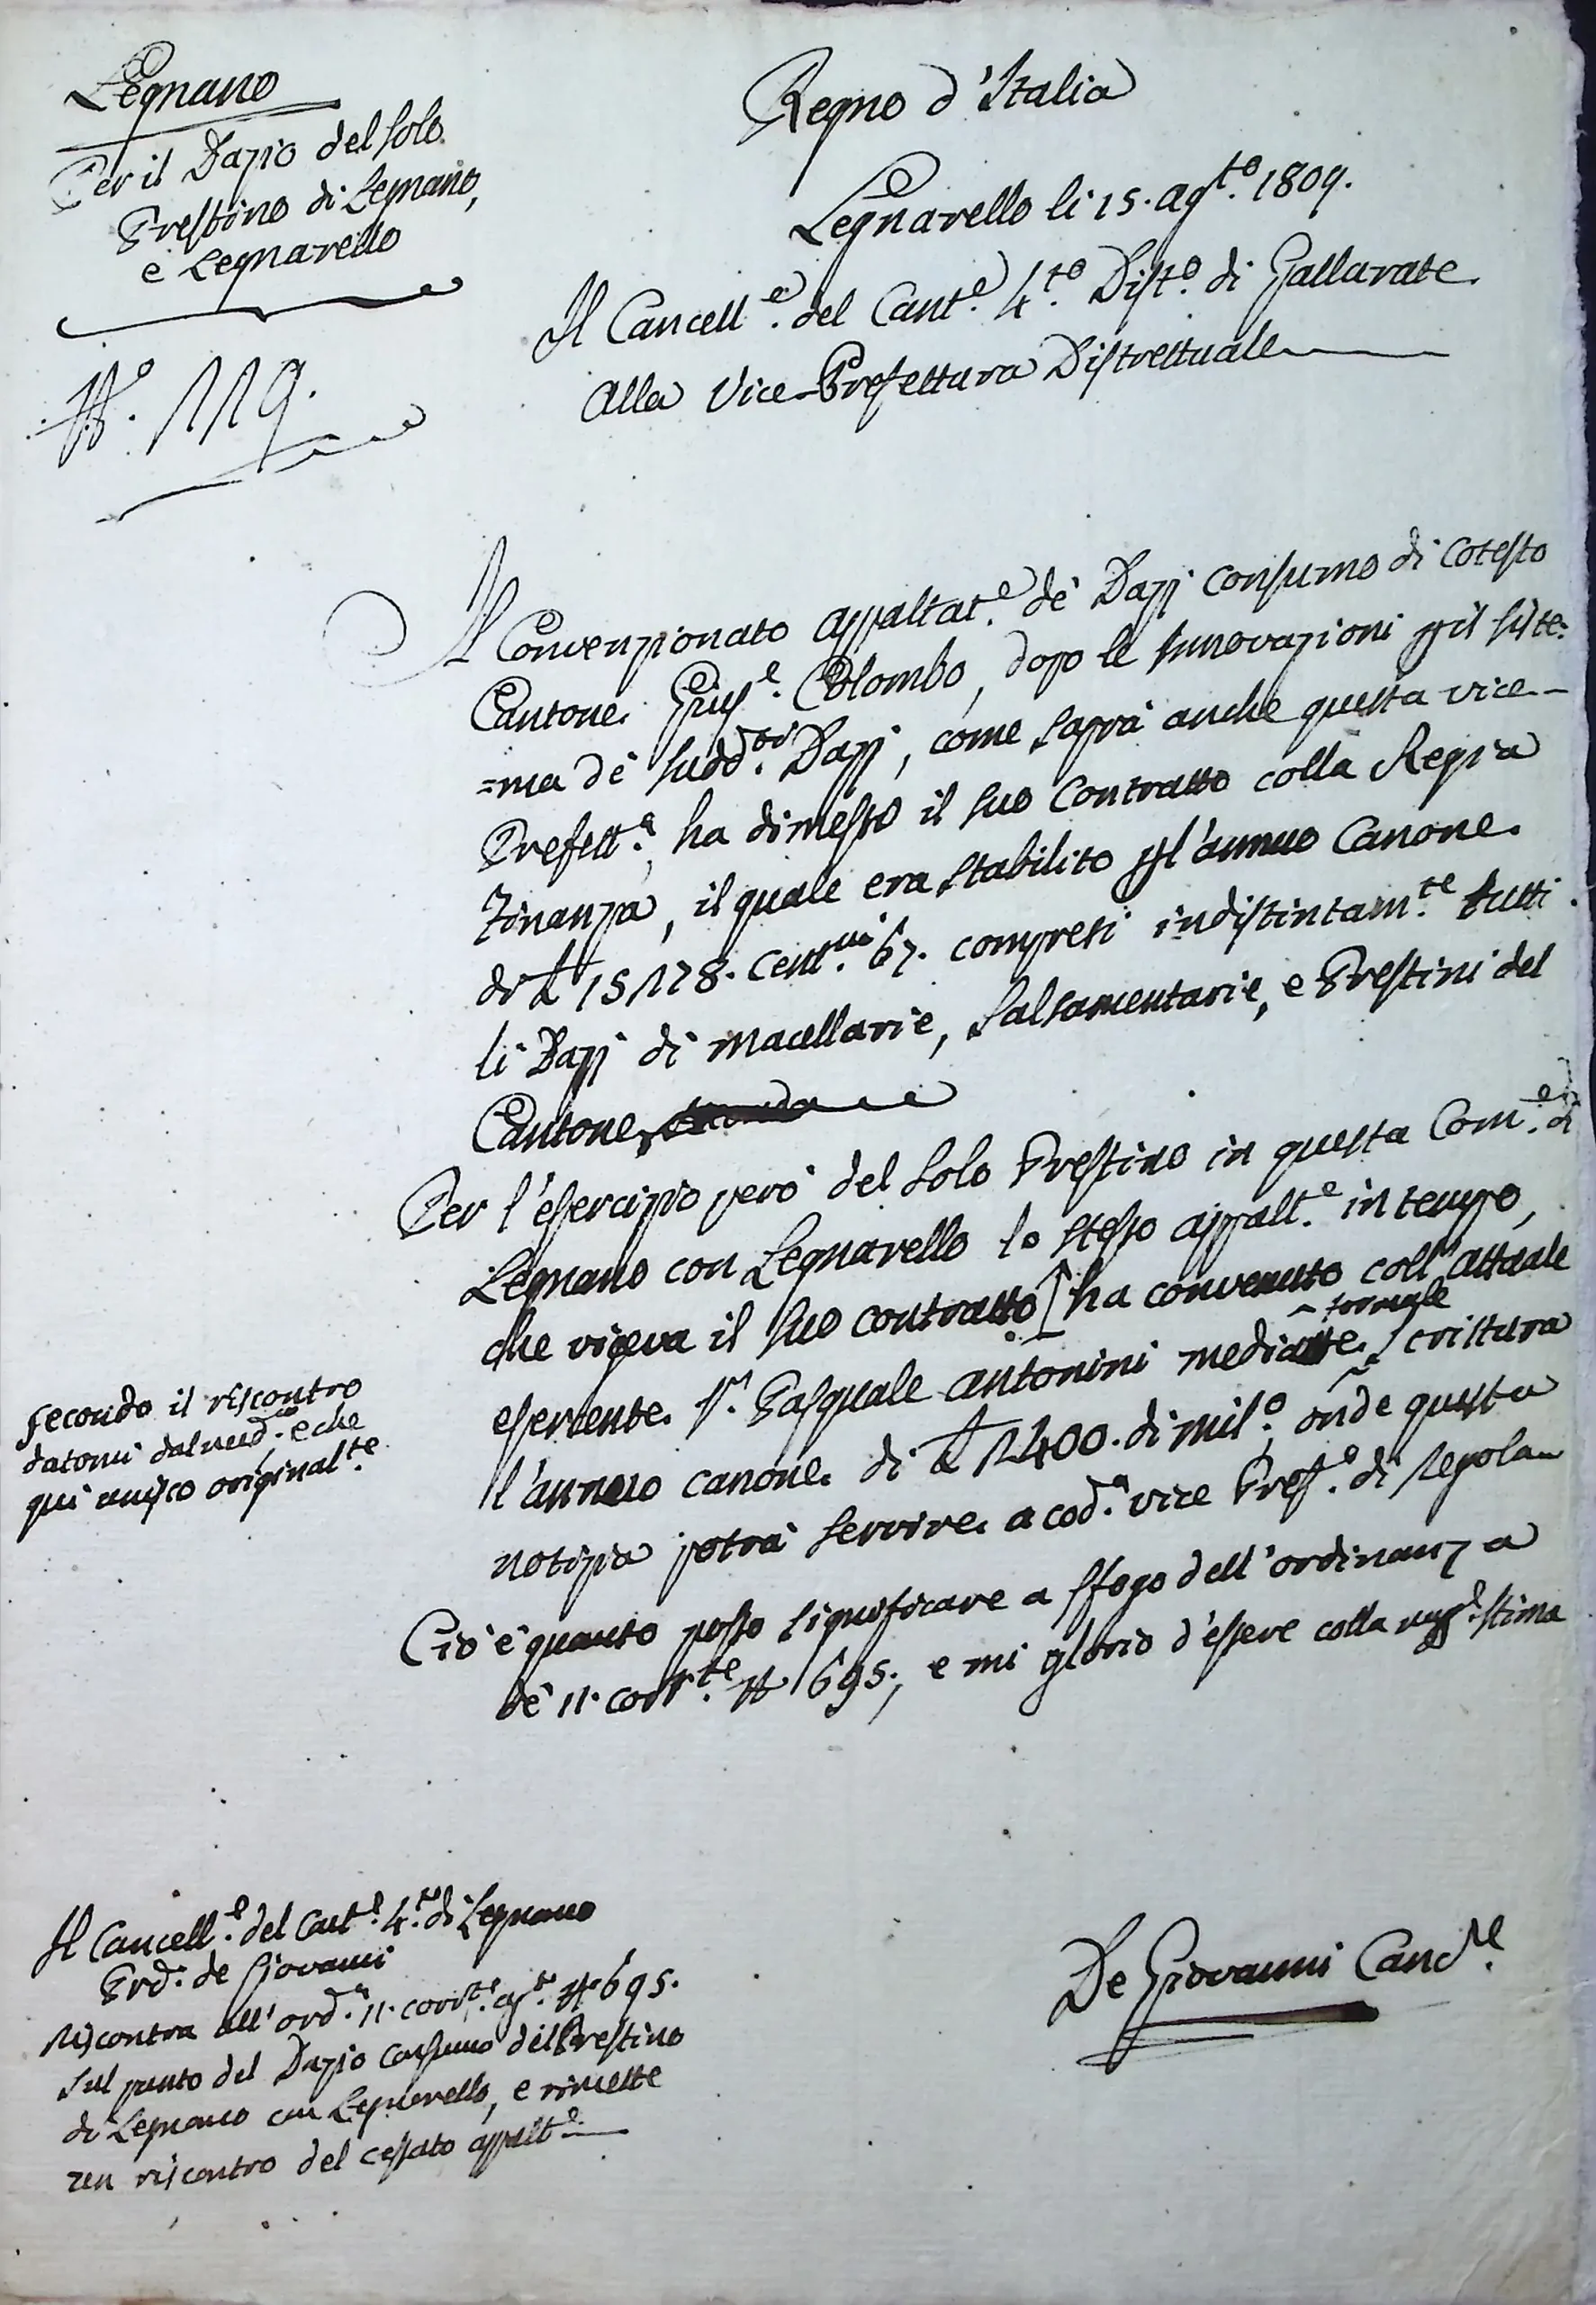 Legnano
Per il Dazio del solo
Prestino di Legnano,
e Legnarello
N.º 119.
Regno d'Italia
Legnarello li 15. agto. 1809.
Il Cancelle. del Cante. 4to. Disto. di Gallarate
Alla Vice-Prefettura Distrettuale
Il Convenzionato appaltate. de' Dazj consumo di cotesto
Cantone Giuse. Colombo, dopo le innovazioni pil siste=
=ma de' sudd.ti Dazj, come saprà anche questa vice-
Prefetta. ha dimesso il suo Contratto colla Regia
Finanza, il quale era stabilito pl'annuo Canone
di £ 15178. Centmi. 67. compresi indistintamte. tutti
li Dazj di macellarie, salsamentarie, e Prestini del
Cantone
Per l'esercizio però del solo Prestino in questa Come. di
Legnano con Legnarello lo stesso appalte. in tempo,
che vigeva il suo contratto ha convenuto coll'attuale
formale
esercente Sr. Pasquale Antonini mediante scrittura
l'annuo canone di £ 1400. di Milo., onde questa
notizia potrà servire a coda. vice Prefa. di regola
secondo il riscontro
datomi dal medmo. e che
qui unisco originalte.
Ciò è quanto posso significare a sfogo dell'ordinanza
de' 11. corrte. N 695., e mi glorio d'essere colla stima
Il Cancelle. del Cante. 4to. di Legnano
Prd. de Giovanni
Riscontra all'orda. 11. corrte. agto. N 695.
sul punto del Dazio consumo del Prestino
di Legnano con Legnarello, e rimette
un riscontro del cessato appalte.
De Giovanni Cancre.